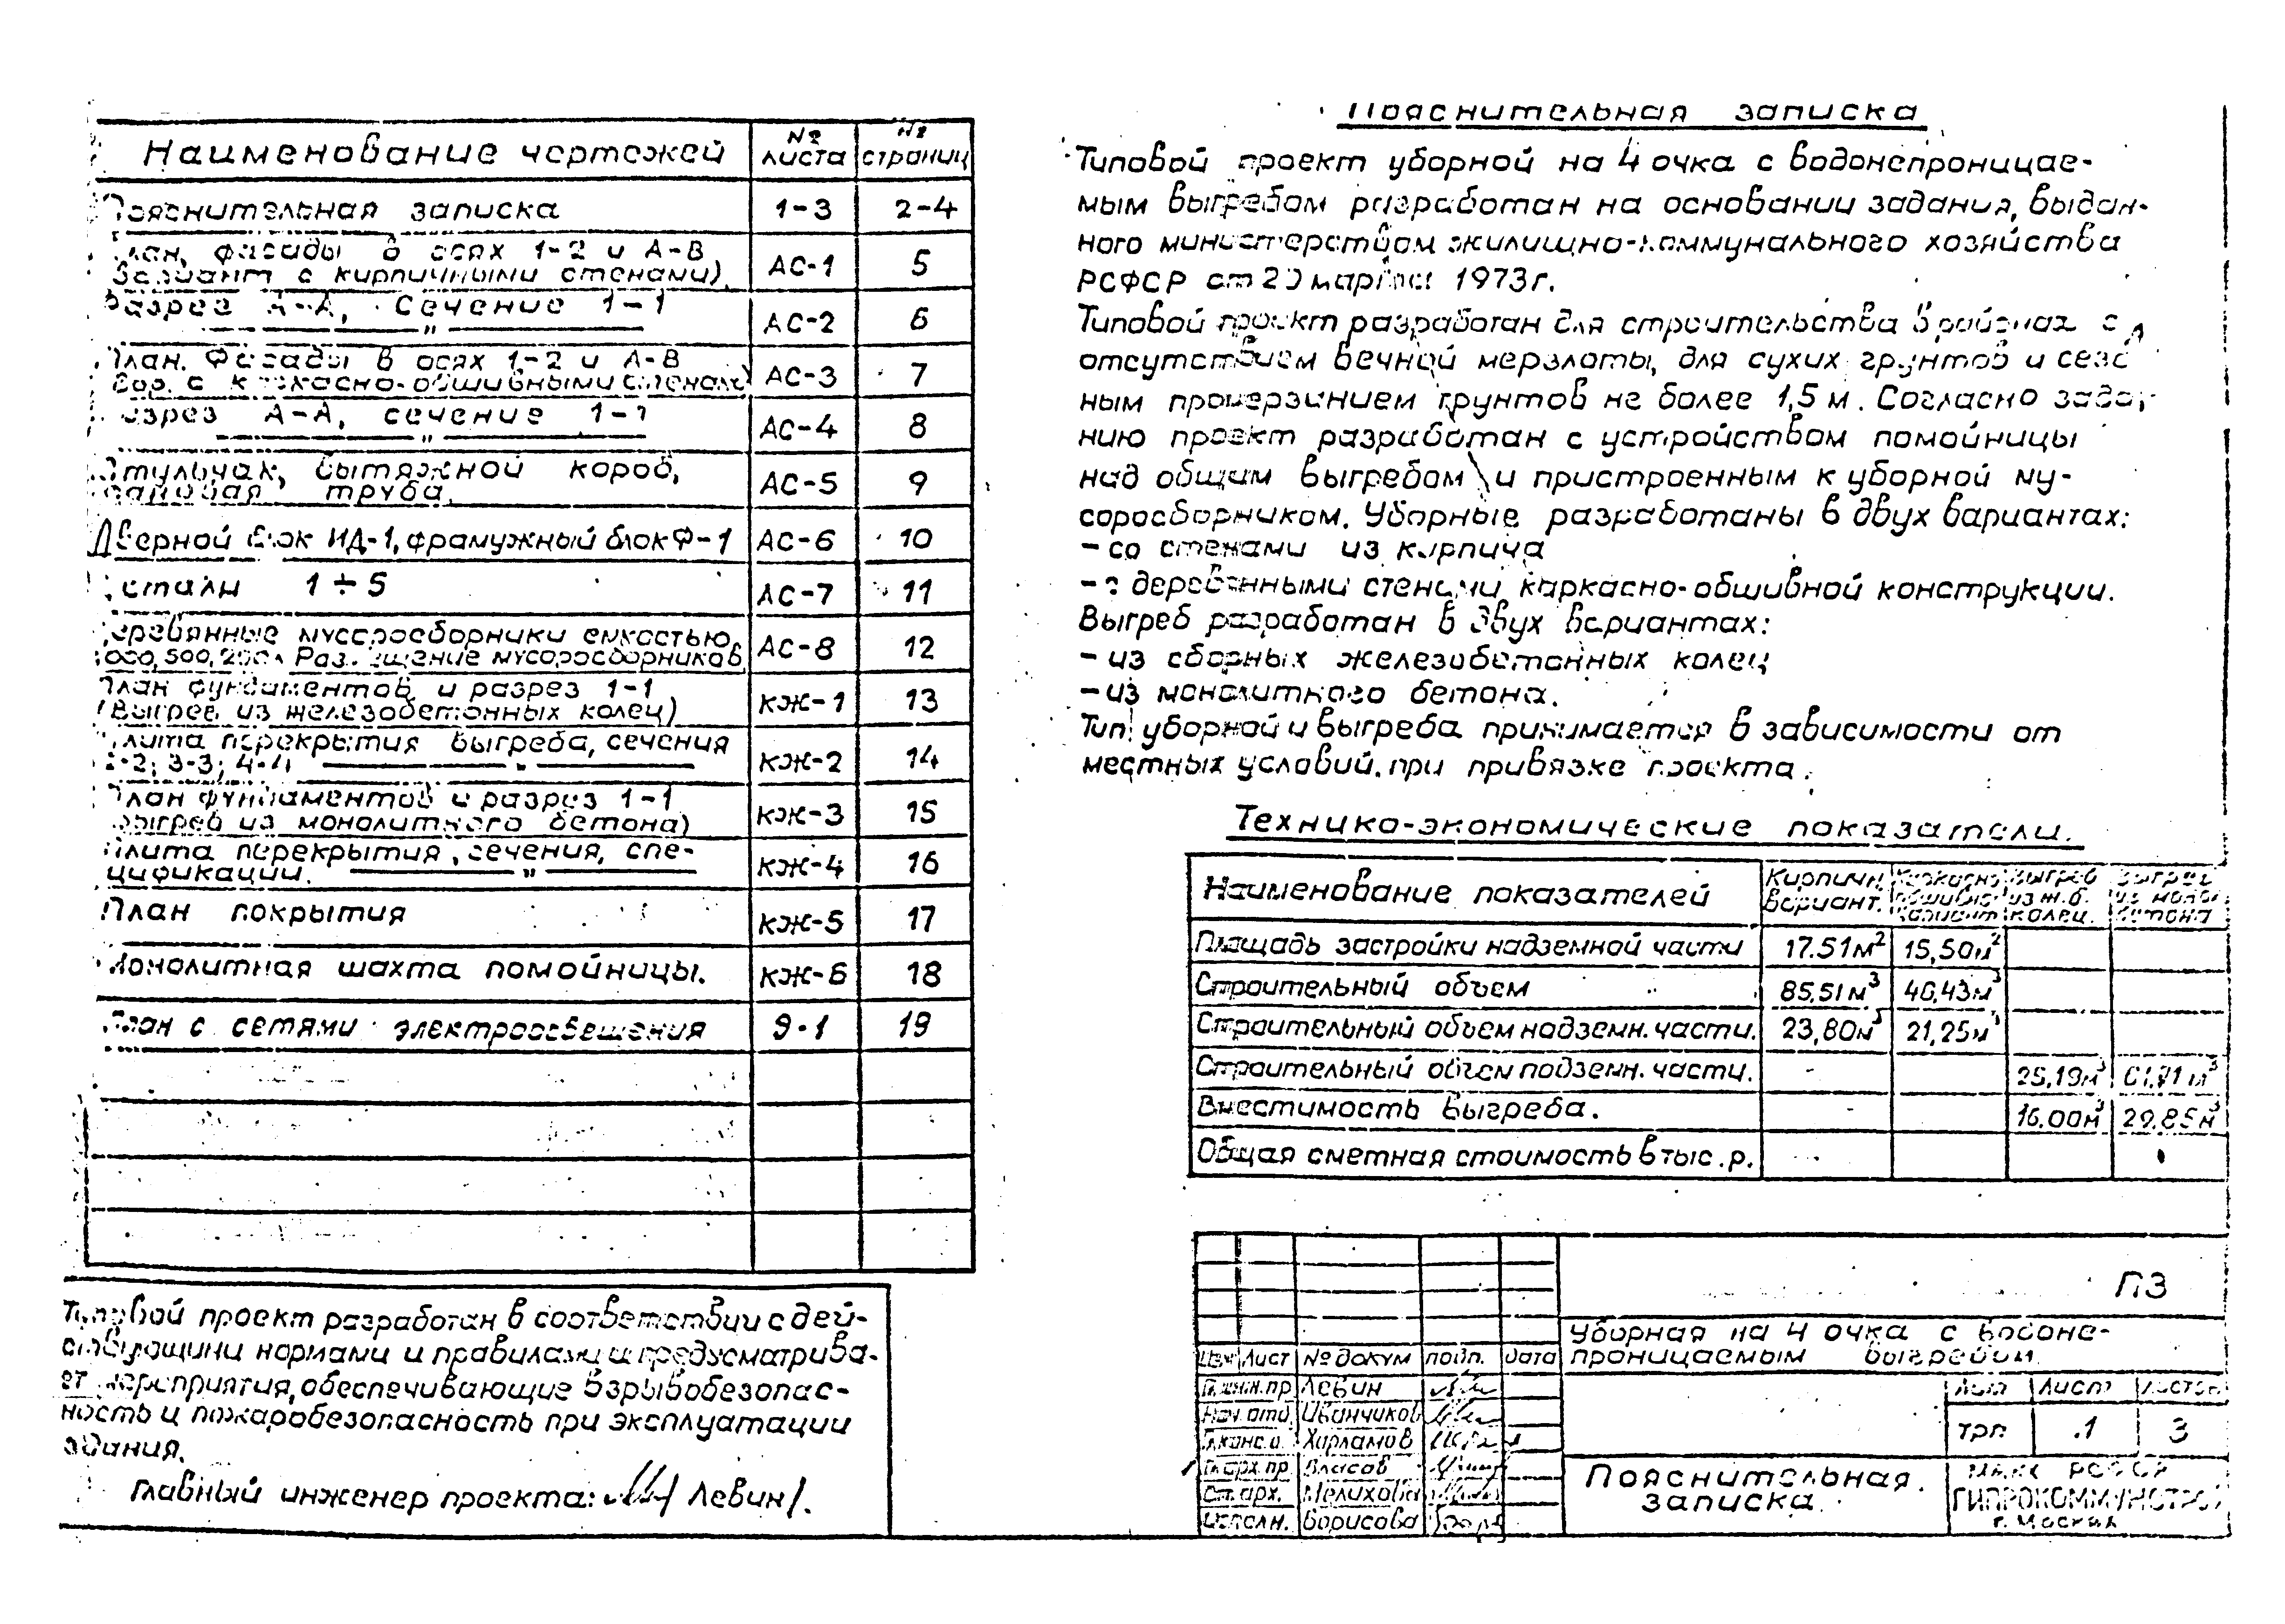 Наименование чертежей № листа № страниц
Пояснительная записка 1-3 2-4
План, фасады в осях 1-2 и А-В
Вариант с кирпичными стенами). АС-1 5
Разрез А-А, Сечение 1-1
— " — АС-2 6
План. Фасады в осях 1-2 и А-В
Вар. с каркасно-обшивными стенами) АС-3 7
Разрез А-А, сечение 1-1
— " — АС-4 8
Стульчак, вытяжной короб,
труба. АС-5 9
Дверной блок ИД-1, фрамужный блок Ф-1 АС-6 10
Детали 1÷5 АС-7 11
Деревянные мусоросборники емкостью
500, Размещение мусоросборников АС-8 12
План фундаментов и разрез 1-1
(Выгреб из железобетонных колец) КЖ-1 13
Плита перекрытия выгреба, сечения
2-2; 3-3; 4-4 — " — КЖ-2 14
План фундаментов и разрез 1-1
выгреб из монолитного бетона) КЖ-3 15
Плита перекрытия, сечения, спе-
цификации. — " — КЖ-4 16
План покрытия КЖ-5 17
Монолитная шахта помойницы. КЖ-6 18
План с сетями электроосвещения Э-1 19
Типовой проект разработан в соответствии с дей-
ствующими нормами и правилами и предусматрива-
ет мероприятия, обеспечивающие взрывобезопас-
ность и пожаробезопасность при эксплуатации
здания.
Главный инженер проекта: /Левин/.
Пояснительная записка
Типовой проект уборной на 4 очка с водонепроницае-
мым выгребом разработан на основании задания, выдан-
ного министерством жилищно-коммунального хозяйства
РСФСР от марта 1973г.
Типовой проект разработан для строительства в районах с
отсутствием вечной мерзлоты, для сухих грунтов и сезо
ным промерзанием грунтов не более 1,5 м. Согласно зада-
нию проект разработан с устройством помойницы
над общим выгребом и пристроенным к уборной му-
соросборником. Уборные разработаны в двух вариантах:
- со стенами из кирпича
- с деревянными стенами каркасно-обшивной конструкции.
Выгреб разработан в двух вариантах:
- из сборных железобетонных колец
- из монолитного бетона.
Тип уборной и выгреба принимается в зависимости от
местных условий, при привязке проекта.
Технико-экономические показатели.
Наименование показателей Кирпичн. вариант. Каркасно обшивной вариант Выгреб из ж.б. колец. Выгреб из моно. бетона
Площадь застройки надземной части 17.51м² 15,50м²
Строительный объем 85,51м³ 46,43м³
Строительный объем надземн. части. 23,80м³ 21,25м³
Строительный объем подземн. части. - - 25,19м³ 61,71м³
Вместимость выгреба. - 16.00м³ 29.85м³
Общая сметная стоимость в тыс. р.
ПЗ
Уборная на 4 очка с водоне-
проницаемым выгребом.
Изм Лист № докум подп. дата
Гл.инж.пр Левин
Нач.отд. Иванчиков
Гл.конс.о. Харламов
Гл.арх.пр Власов
Ст.арх. Мелихова
Исполн. Борисова
Лит Лист Листов
ТРП 1 3
Пояснительная
записка.
МЖКХ РСФСР
ГИПРОКОММУНСТРОЙ
г. Москва